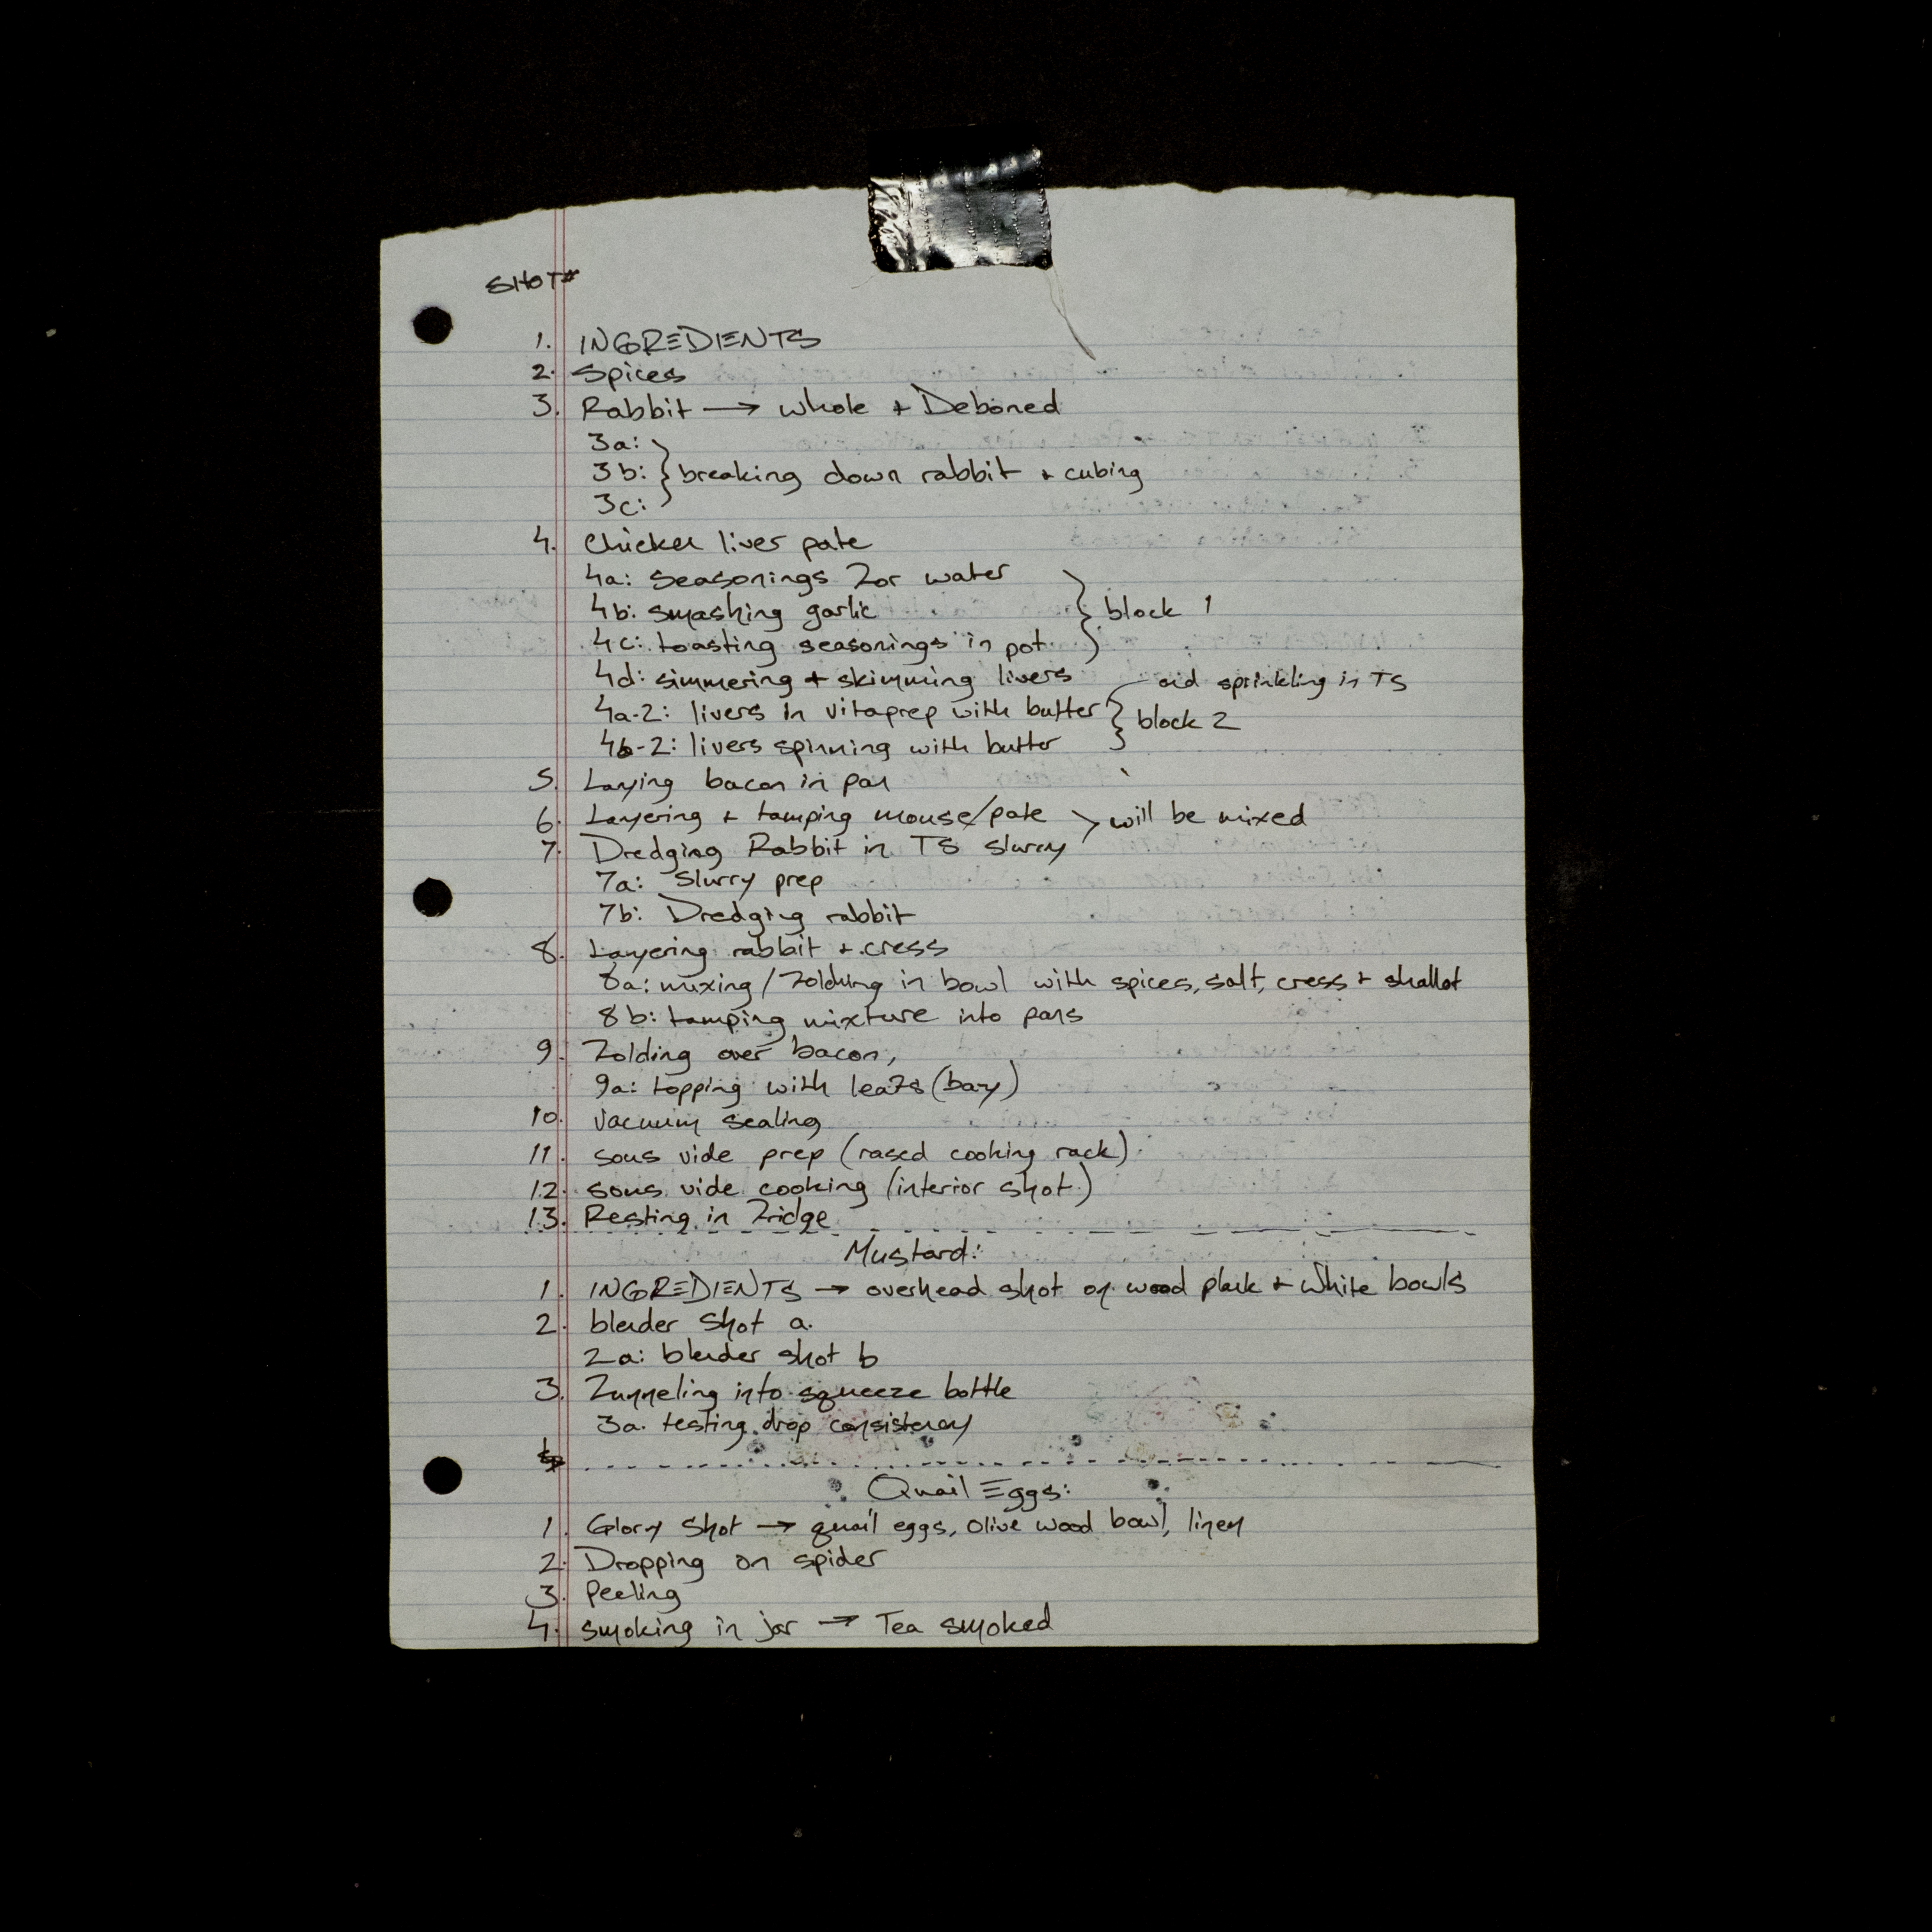 SHOT#
1. INGREDIENTS
2. Spices
3. Rabbit → whole + Deboned
3a:
3b: } breaking down rabbit + cubing
3c:
4. Chicken liver pate
4a: seasonings for water
4b: smashing garlic } block 1
4c: toasting seasonings in pot
4d: simmering + skimming livers
and sprinkling in TS
4a-2: livers in vitaprep with butter } block 2
4b-2: livers spinning with butter
5. Laying bacon in pan
6. Layering + tamping mouse/pate > will be mixed
7. Dredging Rabbit in TS slurry
7a: Slurry prep
7b: Dredging rabbit
8. Layering rabbit + cress
8a: mixing/folding in bowl with spices, salt, cress + shallot
8b: tamping mixture into pans
9. folding over bacon,
9a: topping with leafs (bay)
10. vacuum sealing
11. sous vide prep (rased cooking rack)
12. sous vide cooking (interior shot)
13. Resting in fridge
Mustard:
1. INGREDIENTS → overhead shot on wood plank + white bowls
2. blender shot a.
2a: blender shot b
3. funneling into squeeze bottle
3a. testing drop consistency
Quail Eggs:
1. Glory Shot → quail eggs, olive wood bowl, linen
2. Dropping on spider
3. Peeling
4. smoking in jar → Tea smoked